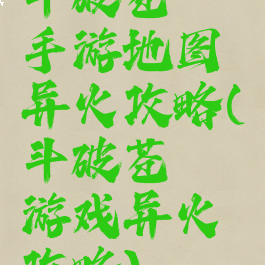 斗破苍
手游地图
异火攻略(
斗破苍
游戏异火
攻略)